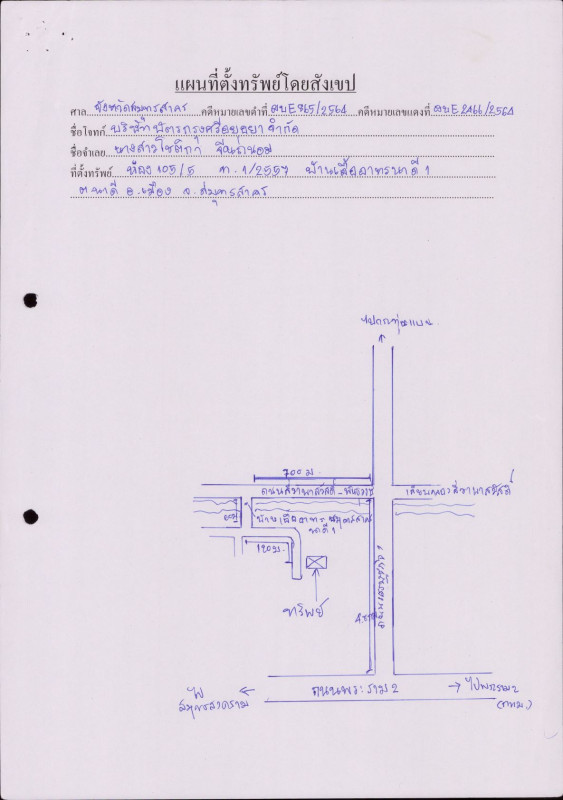 แผนที่ตั้งทรัพย์โดยสังเขป
ศาล จังหวัดสมุทรสาคร คดีหมายเลขดำที่ ผบE765/2564 คดีหมายเลขแดงที่ ผบE2466/2564
ชื่อโจทก์ บริษัท บัตรกรุงศรีอยุธยา จำกัด
ชื่อจำเลย นางสาวโชติกา จีนถนอม
ที่ตั้งทรัพย์ ห้อง 105/5 ท.1/2557 บ้านเอื้ออาทรนาดี 1
ต.นาดี อ.เมือง จ.สมุทรสาคร
ไปกระทุ่มแบน
700 ม.
ถนนสีวาพาสวัสดิ์ -
เลียบคลองสี่วาพาสวัสดิ์
บ้านเอื้ออาทร สมุทรสาคร
นาดี 1
120 ม.
ทรัพย์
ถนนเศรษฐกิจ 1
ไป
สมุทรสงคราม
ถนนพระราม 2
ไปพระราม 2
(กทม.)